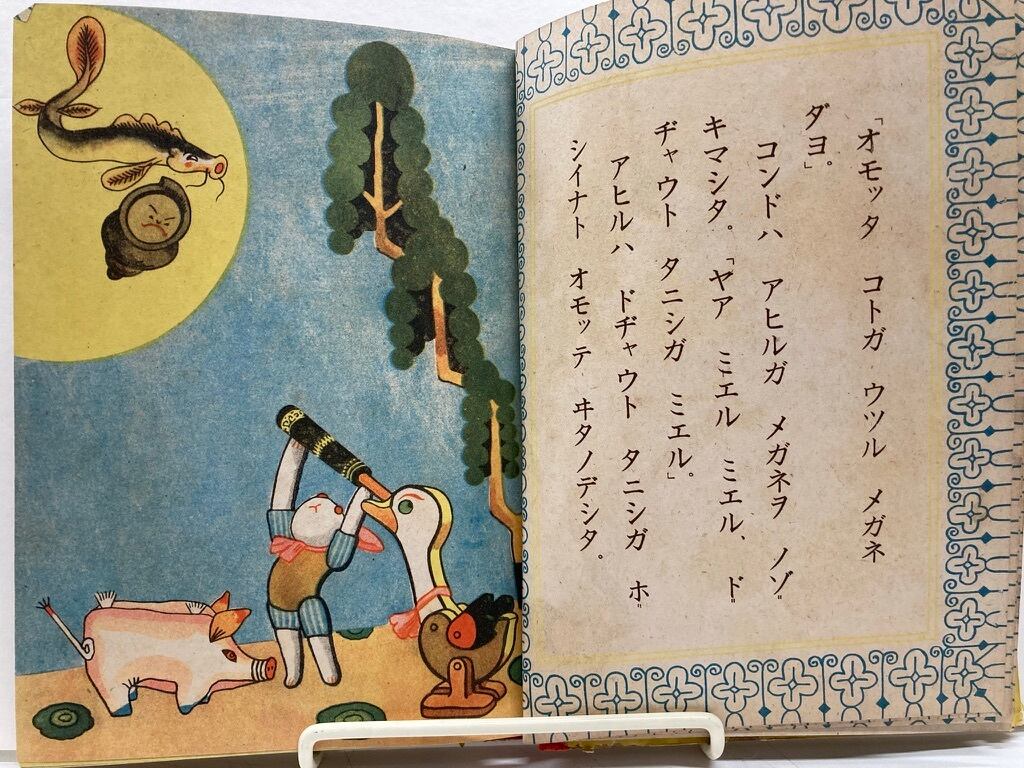 「オモッタ コトガ ウツル メガネ
ダヨ。」
コンドハ アヒルガ メガネヲ ノゾ
キマシタ。「ヤア ミエル ミエル、ド
ヂャウト タニシガ ミエル。」
アヒルハ ドヂャウト タニシガ ホ
シイナト オモッテ ヰタノデシタ。